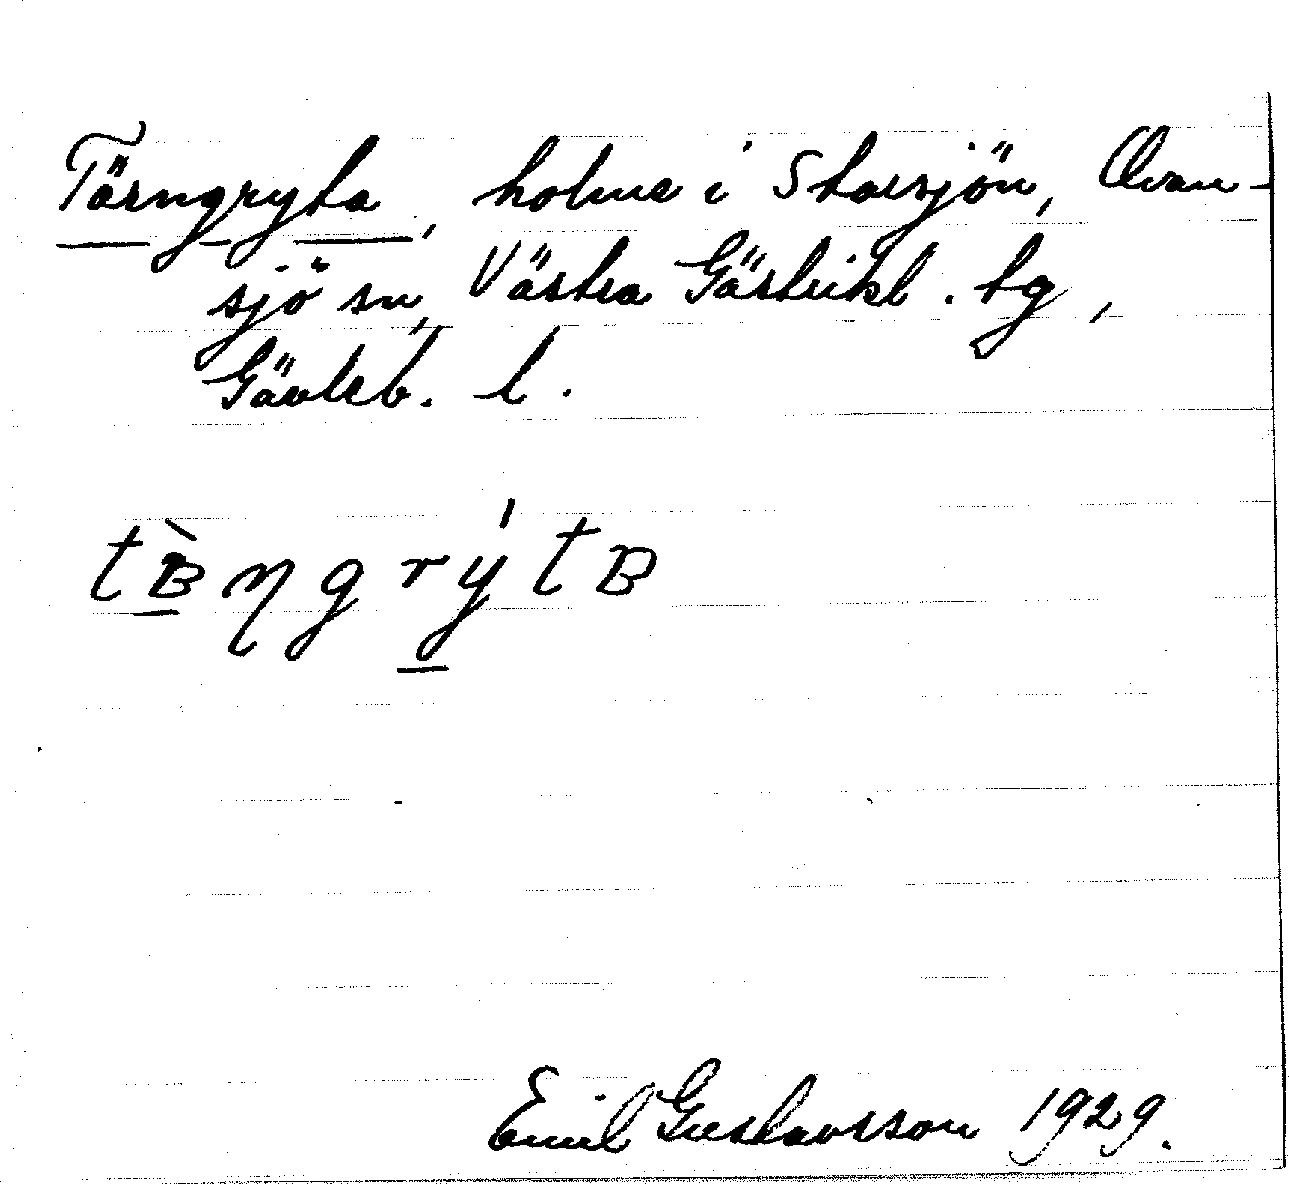 Tärngryta, holme i Storsjön, Ovan-
sjö sn, Västra Gästrikl. tg,
Gävleb. l.
tɞ̀ŋgrýtɞ
Emil Gustavsson 1929.